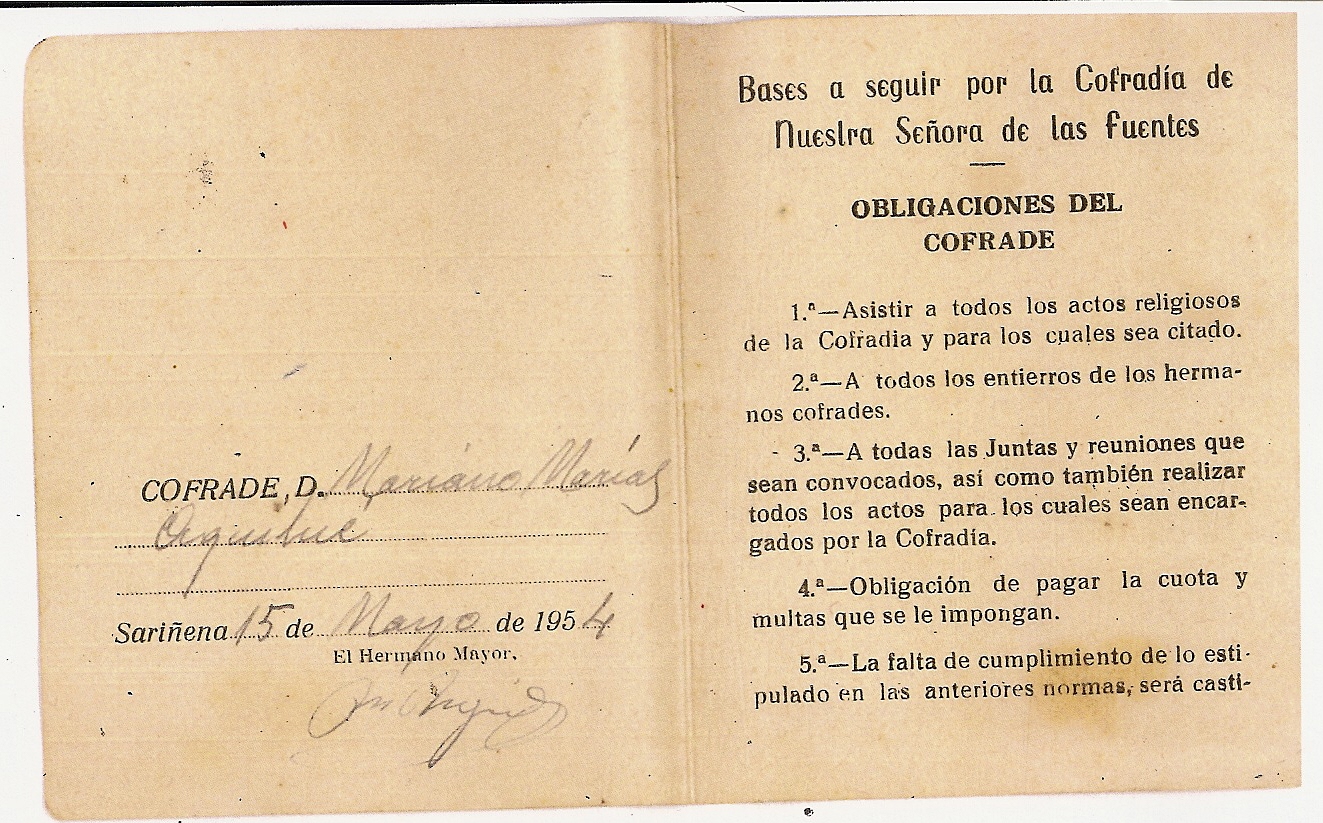 COFRADE, D. Mariano Marías
Sariñena 15 de Mayo de 1954
El Hermano Mayor,
Bases a seguir por la Cofradía de
Nuestra Señora de las Fuentes
OBLIGACIONES DEL
COFRADE
1.ª—Asistir a todos los actos religiosos
de la Cofradia y para los cuales sea citado.
2.ª—A todos los entierros de los herma-
nos cofrades.
3.ª—A todas las Juntas y reuniones que
sean convocados, así como también realizar
todos los actos para los cuales sean encar-
gados por la Cofradía.
4.ª—Obligación de pagar la cuota y
multas que se le impongan.
5.ª—La falta de cumplimiento de lo esti-
pulado en las anteriores normas, será casti-